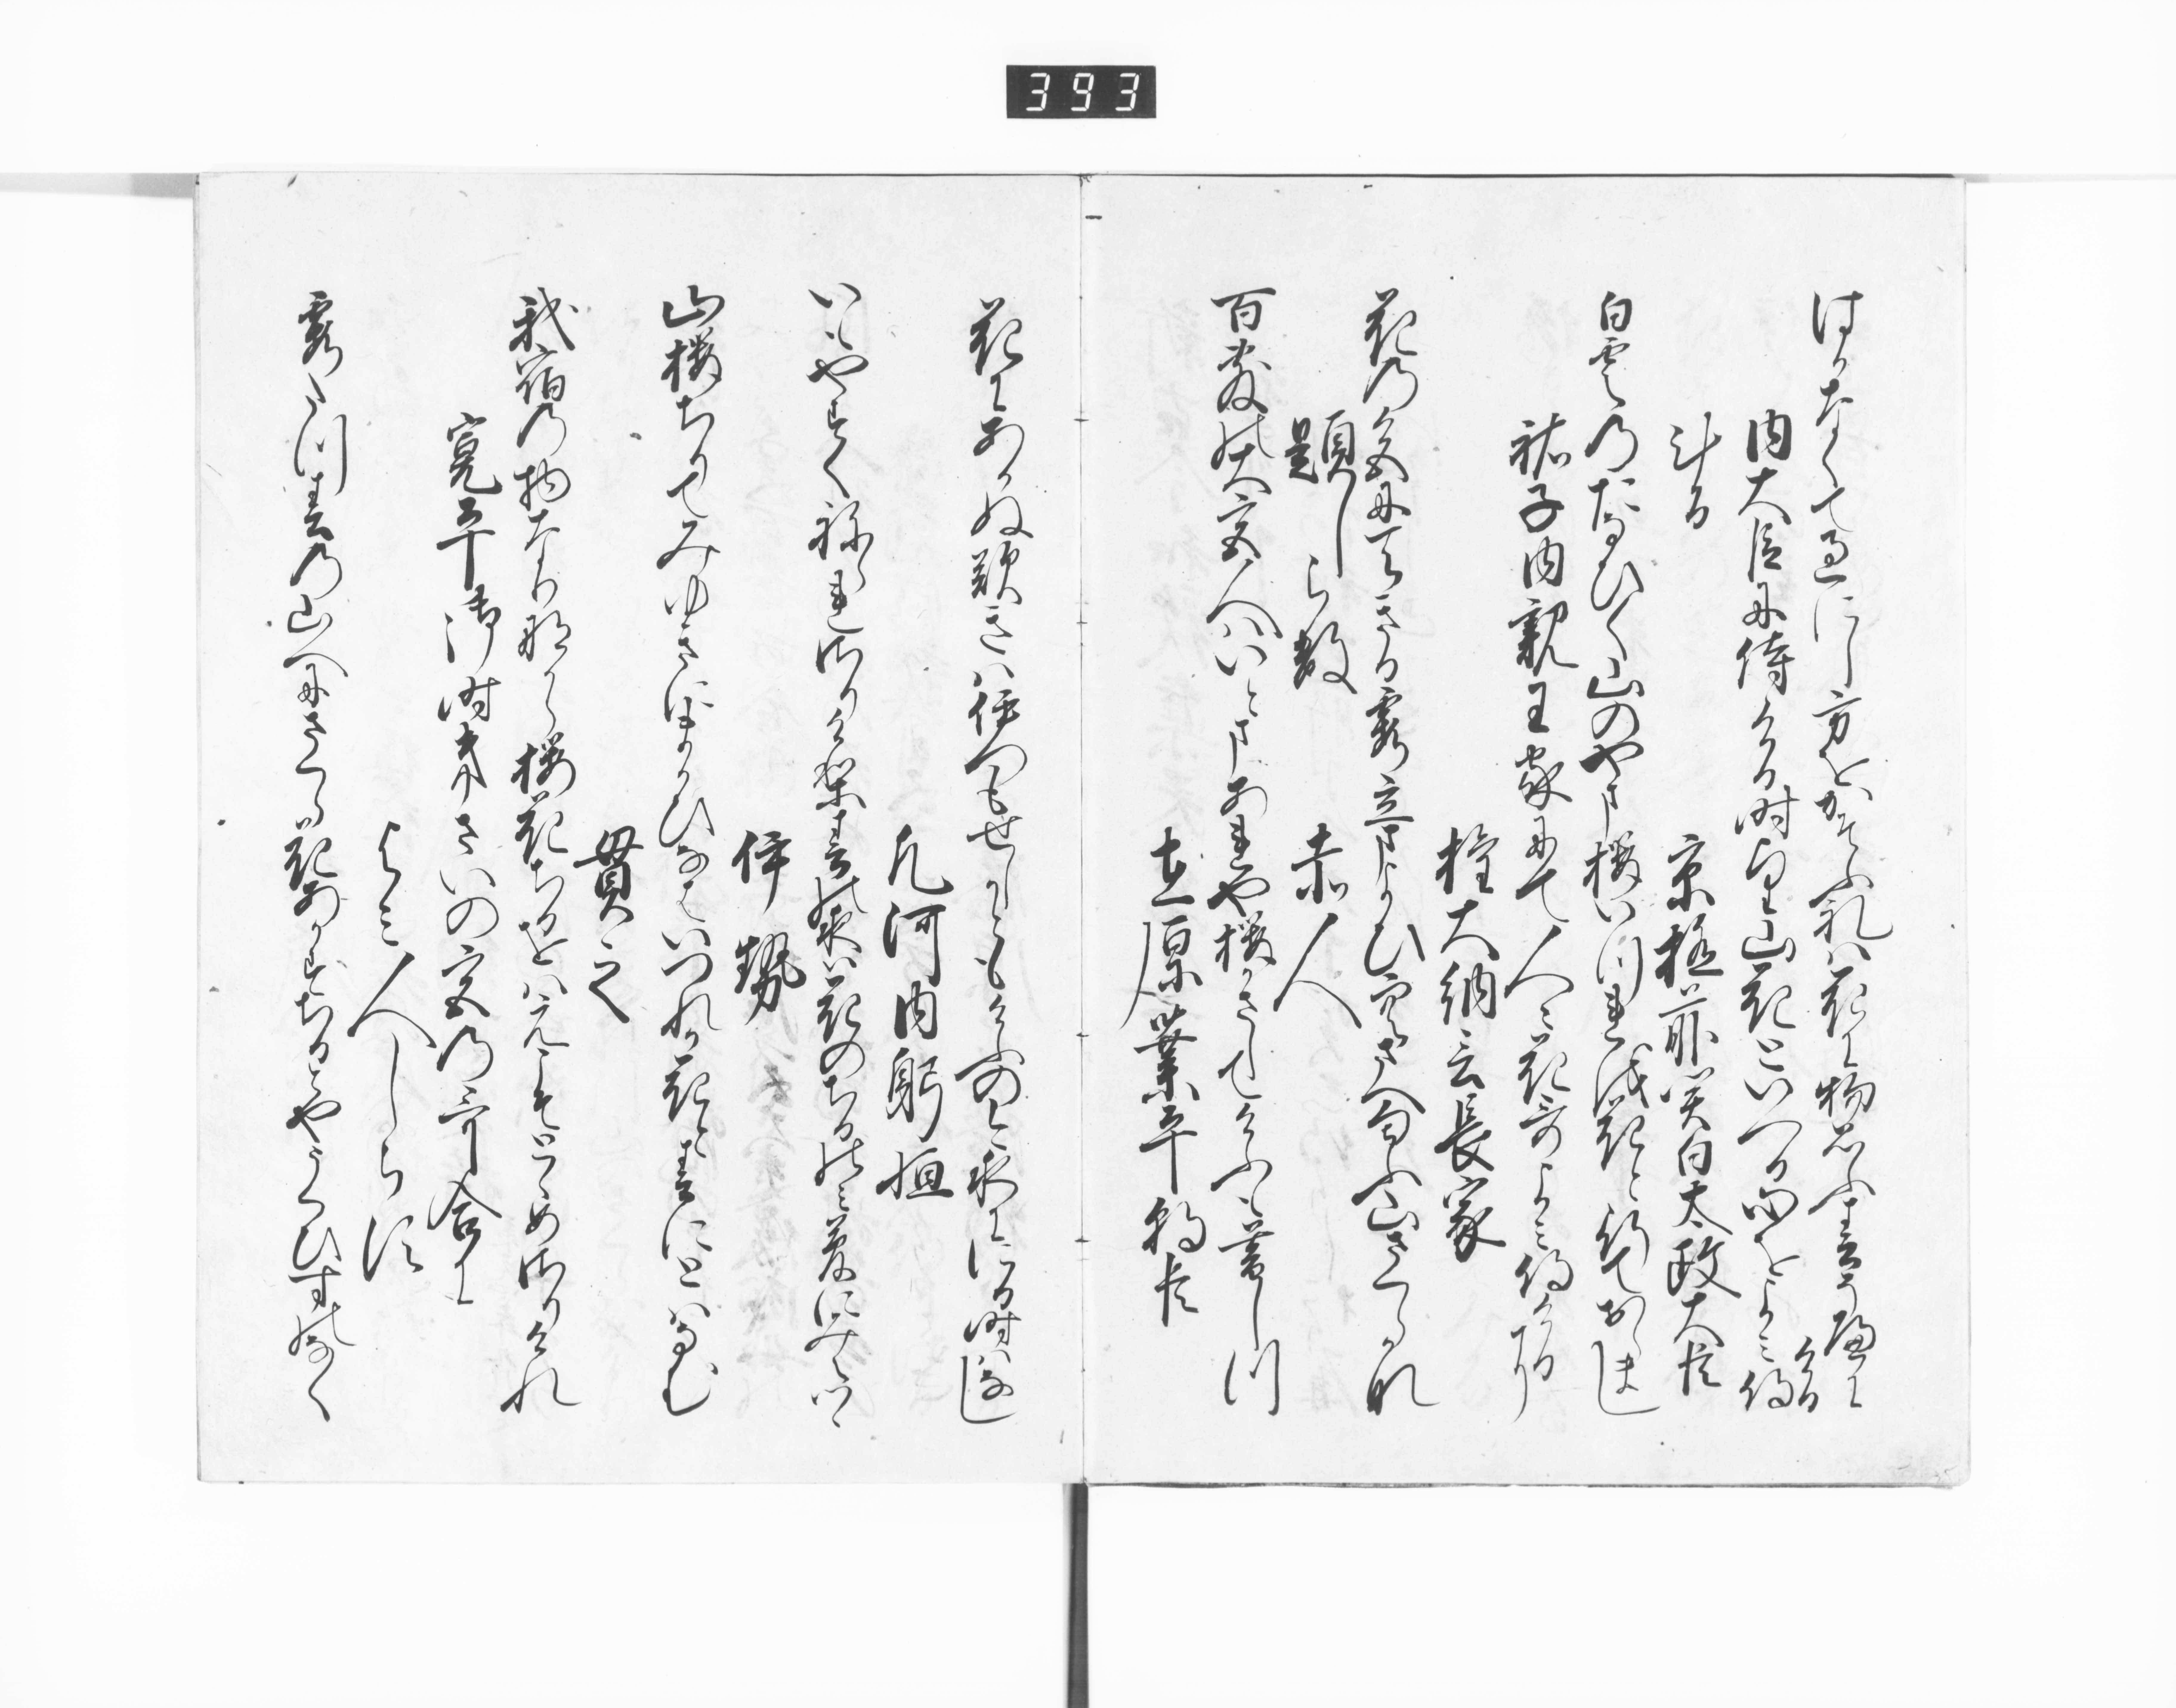 393
はかなくて過にし方をかそふれは花に物思ふ春そ経に
ける
内大臣に侍ける時望山花といへる心をよみ侍
ける
京極前関白太政大臣
白雲のたなひく山のやま桜いつれを花と行ておらまし
祐子内親王家にて人々花哥よみ侍けるに
権大納言長家
花の色にあまきる霞立まよひ空さへ匂ふ山さくらかな
題しら数
赤人
百敷の大宮人はいとまあれや桜かさしてけふも暮しつ
在原業平朝臣
花にあかぬ歎きは伊つもせしかともけふのこよひににる時はなし
凡河内躬恒
いもやすくねられさりけり春の夜は花のちるのみ夢にみえつゝ
伊勢
山桜ちりてみゆきにまかひなはいつれか花と春にとはなむ
貫之
我宿の物なりなから桜花ちるをはえこそとゝめさりけれ
寛平御時きさいの宮の哥合に
よみ人しらす
霞たつ春の山へにさくら花あかすちるとやうくひすのなく